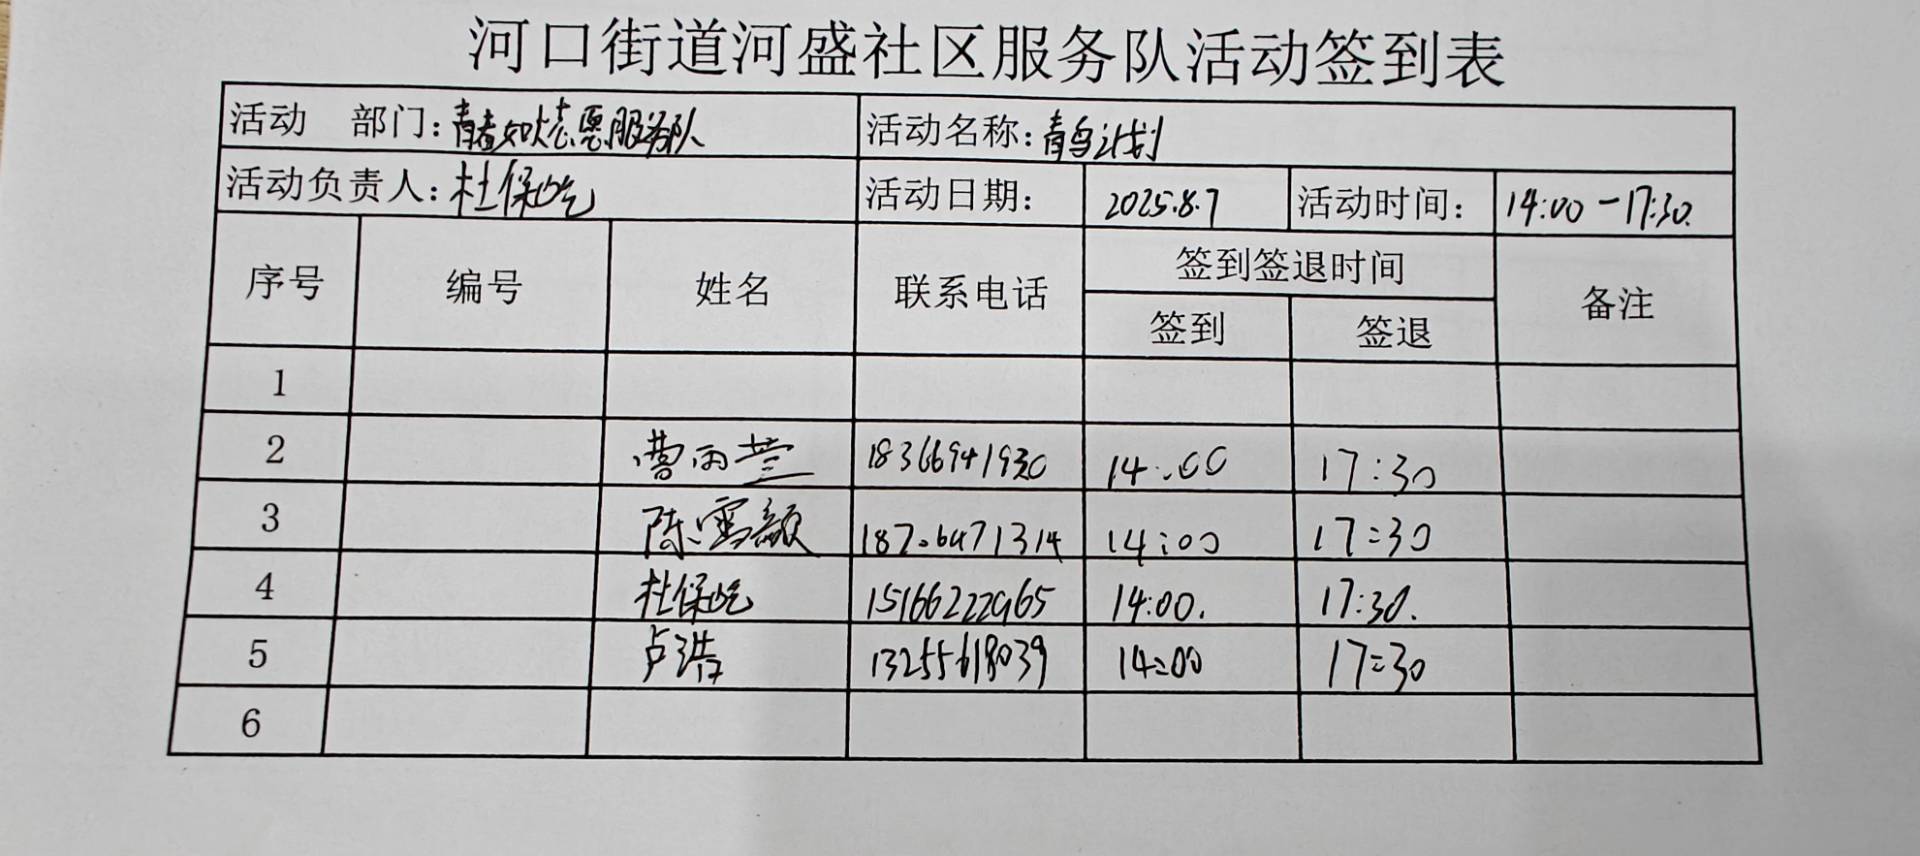 河口街道河盛社区服务队活动签到表
活动 部门：青春如炬志愿服务队 活动名称：青鸟计划
活动负责人：杜保屹 活动日期： 2025.8.7 活动时间： 14:00-17:30.
序号 编号 姓名 联系电话 签到签退时间 备注
签到 签退
1
2 曹雨萱 18366941930 14:00 17:30
3 陈雪颖 18706471314 14:00 17:30
4 杜保屹 15166222965 14:00. 17:30.
5 卢浩 13255618039 14:00 17:30
6